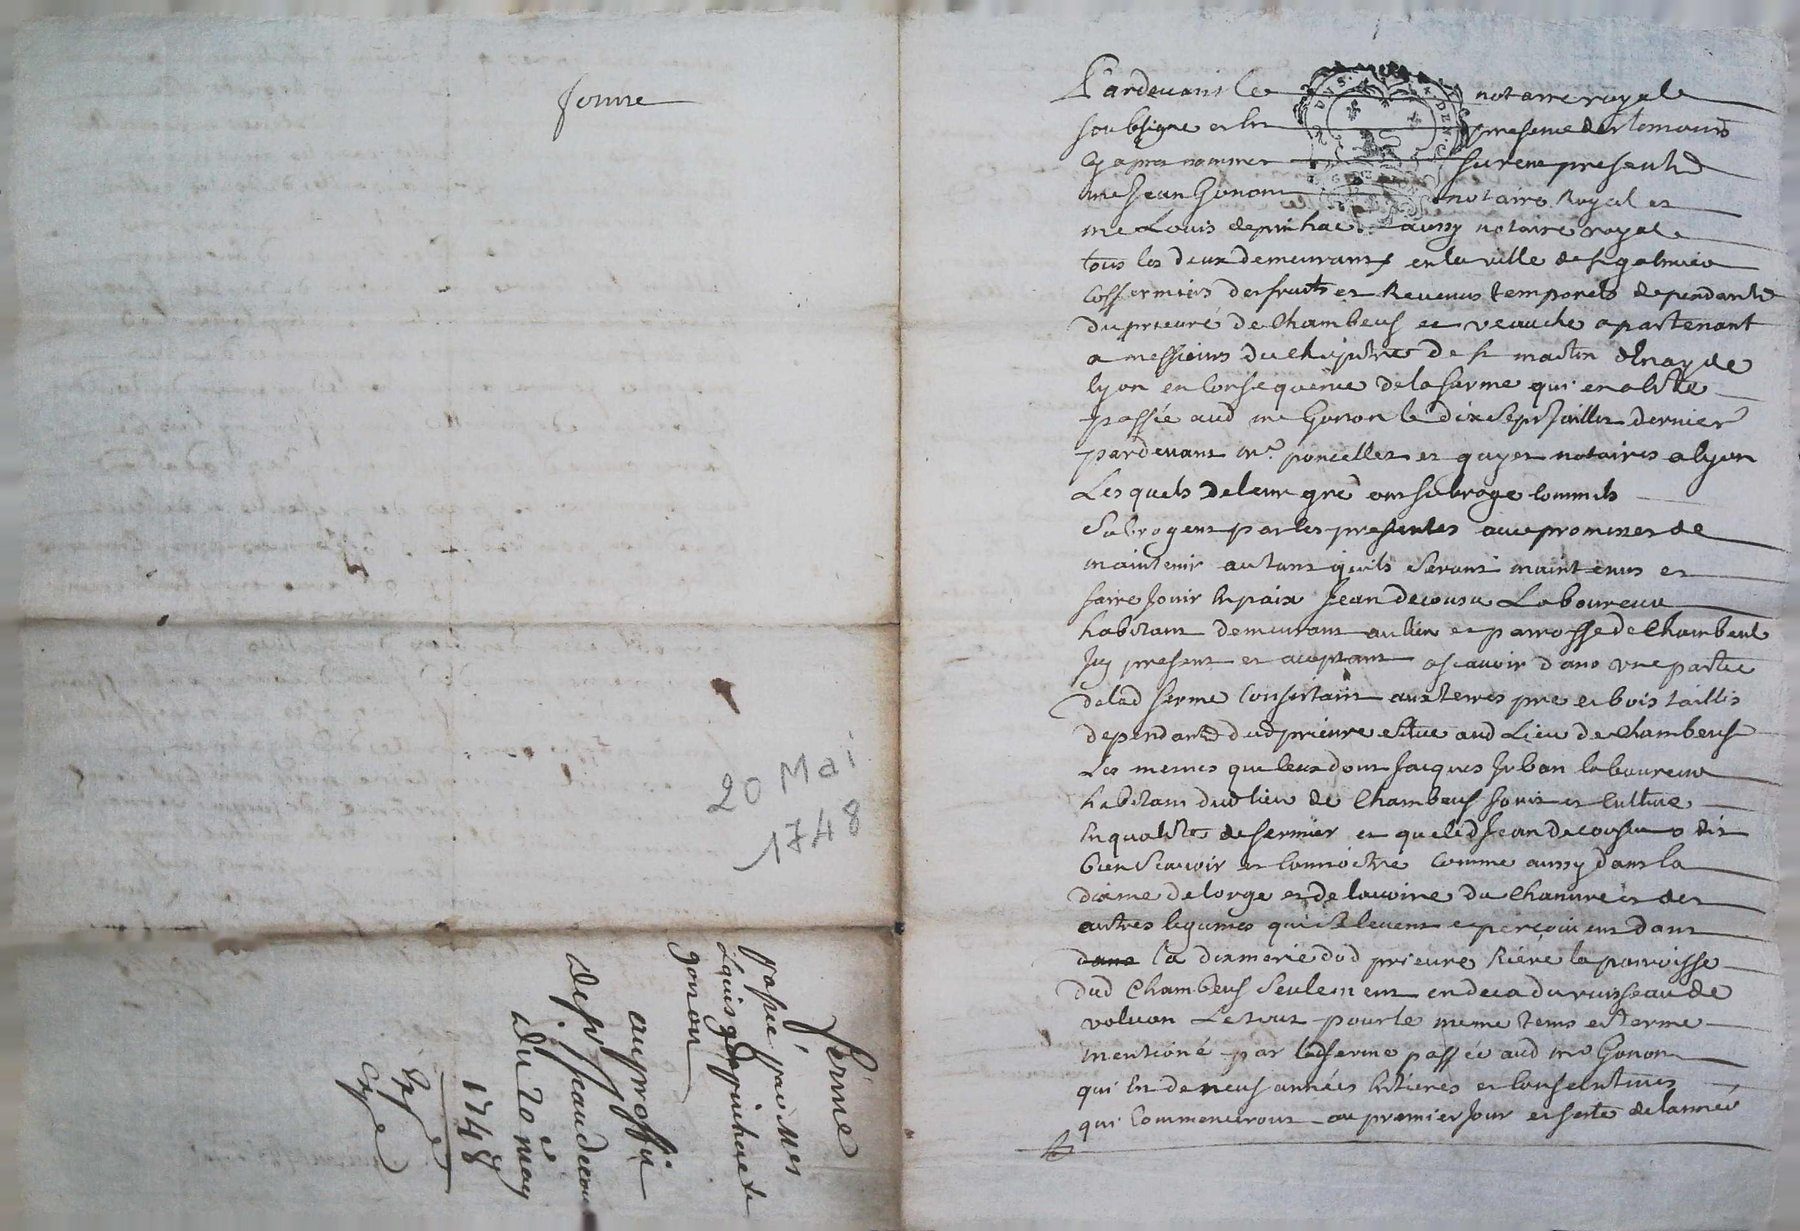 ferme
20 Mai
1748
ferme
passée par Mes
Louis depinhac &
gonon
au proffit
de sr Jean decous
du 20e may
1748
Expe
Pardevant le notaire royal
soubsigné et en presence des temoins
cy apres nommes furent presents
me Jean Gonon notaire Royal et
me Louis depinhac aussy notaire royal
tous les deux demeurants en la ville de st galmier
cofermiers des fruits et Revenus temporels dependants
du prieuré de Chambeuf et veauche apartenant
a messieurs du chapitre de st martin d'Enay de
lyon en consequence de la ferme qui en a été
passée aud me Gonon le dix sept Juillet dernier
pardevant me poncellet et guyot notaires a lyon
Lesquels de leur gré ont subrogé comme ils
subrogent par les presentes avec promesse de
maintenir autant quils seront maintenus et
faire Jouir en paix Jean decousu Laboureur
habitant demeurant au lieu et parroisse de Chambeuf
Icy present et aceptant ascavoir dans une partie
de lad ferme consistant aux terres pré et bois taillis
dependants dud prieuré situé aud Lieu de Chambeuf
Les memes que ceux dont Jacques Juban laboureur
habitant dud lieu de Chambeuf Jouit et cultive
en qualité de fermier et que led Jean decousu a dit
bien scavoir et connoitre comme aussy dans la
dixme de lorge et de lavoine du chanvre et des
autres legumes qui se levent et percoivent dans
dans la dixmerie dud prieuré Riere la parroisse
dud Chambeuf seulement en deca du ruisseau de
volvon Le tout pour le meme tems et terme
mentioné par lad ferme passée aud me Gonon
qui est de neuf années entieres et consecutives
qui commenceront au premier Jour et feste de lannée